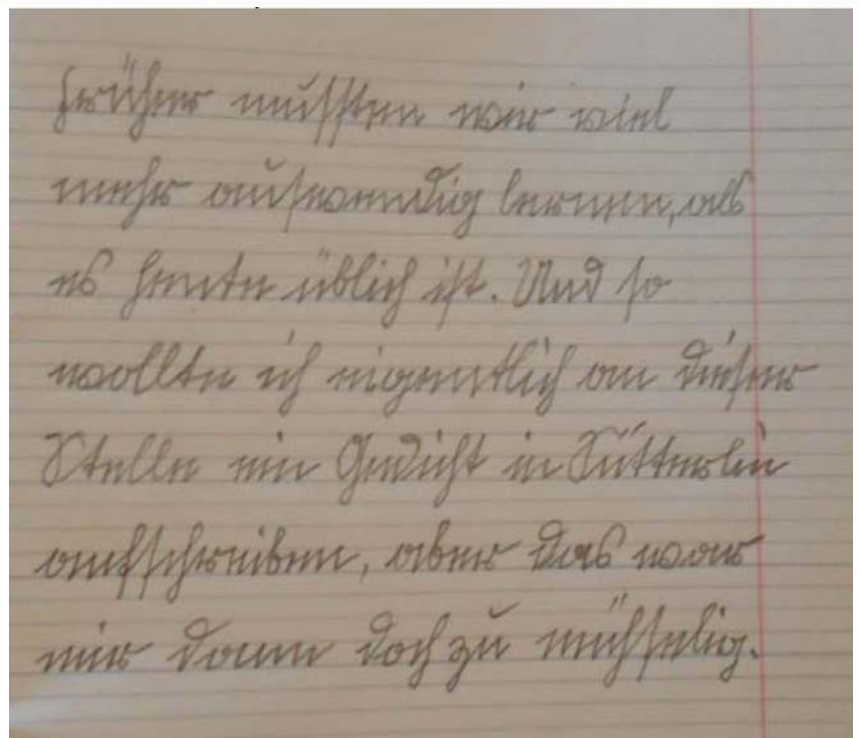 früher mussten wir viel
mehr auswendig lernen, als
es heute üblich ist. Und so
wollte ich eigentlich an dieser
Stelle ein Gedicht in Sütterlin
aufschreiben, aber das war
mir dann doch zu mühselig.